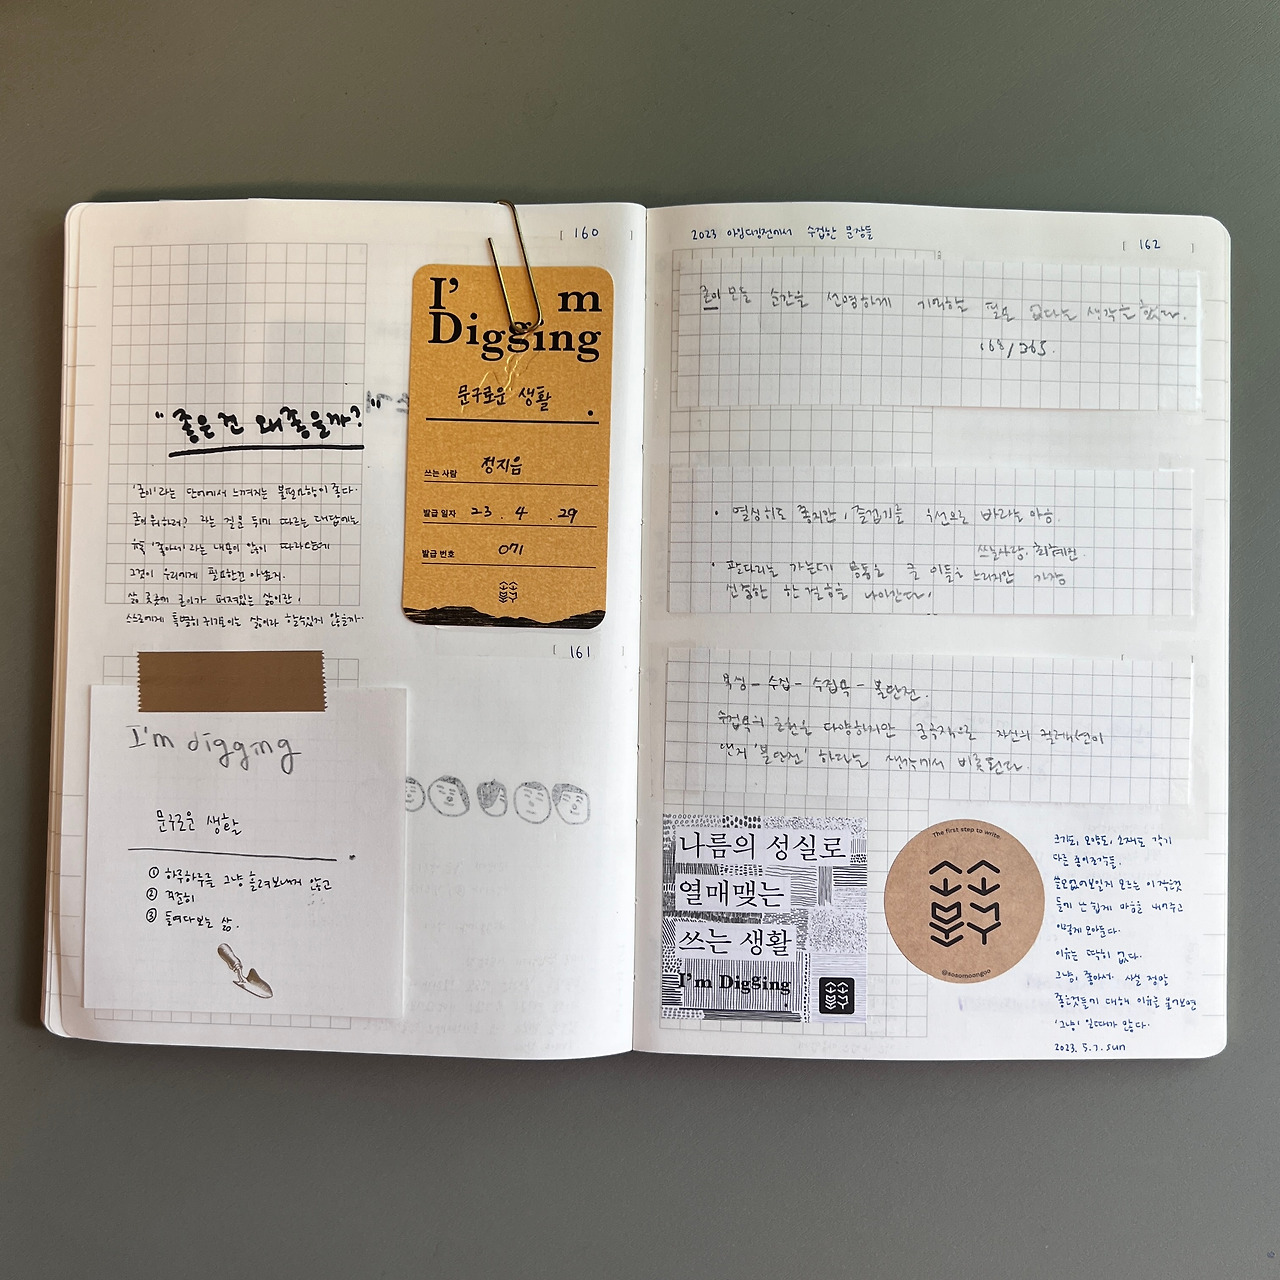 [ 160 ]
I'm
Digging
문구로운 생활.
쓰는 사람 정지음
발급 일자 23. 4. 29
발급 번호 071
"좋은 건 왜 좋을까?"
'굳이'라는 단어에서 느껴지는 불필요함이 좋다.
굳이 위하러? 라는 질문 뒤에 따르는 대답에는
유독 '좋아서'라는 내용이 많이 따라오는데
그것이 우리에게 필요한건 아닐지.
삶 곳곳에 굳이가 퍼져있는 삶이란,
스스로에게 특별히 귀기울이는 삶이라 할수있지 않을까.
[ 161 ]
I'm digging
문구로운 생활.
① 하루하루를 그냥 흘려보내지 않고
② 꾸준히
③ 들여다보는 삶.
2023 아임디깅전에서 수집한 문장들
[ 162 ]
굳이 모든 순간을 선명하게 기억할 필요 없다는 생각을 했다.
168/365.
• 열심히도 좋지만, 즐겁기를 우선으로 바라는 마음.
쓰는사람, 최혜진.
• 팔다리는 가는데 몸통은 큰 이들은 느리지만 가장
신중한 한 걸음을 나아간다.
북씽 - 수집 - 수집욕 - 불완전.
수집욕의 근원은 다양하지만 궁극적으로 자신의 컬렉션이
앤지 '불완전' 하다는 생각에서 비롯된다.
나름의 성실로
열매맺는
쓰는 생활
I'm Digging.
The first step to write.
@sosomoongoo
크기도, 모양도, 소재도 각기
다른 종이조각들.
쓸모없어보일지 모르는 이 작은것
들에 난 쉽게 마음을 내어주고
이렇게 모아둔다.
이유는 딱히 없다.
그냥, 좋아서. 사실 정말
좋은것들에 대해 이유를 물어보면
'그냥' 일때가 많다.
2023. 5. 7. sun